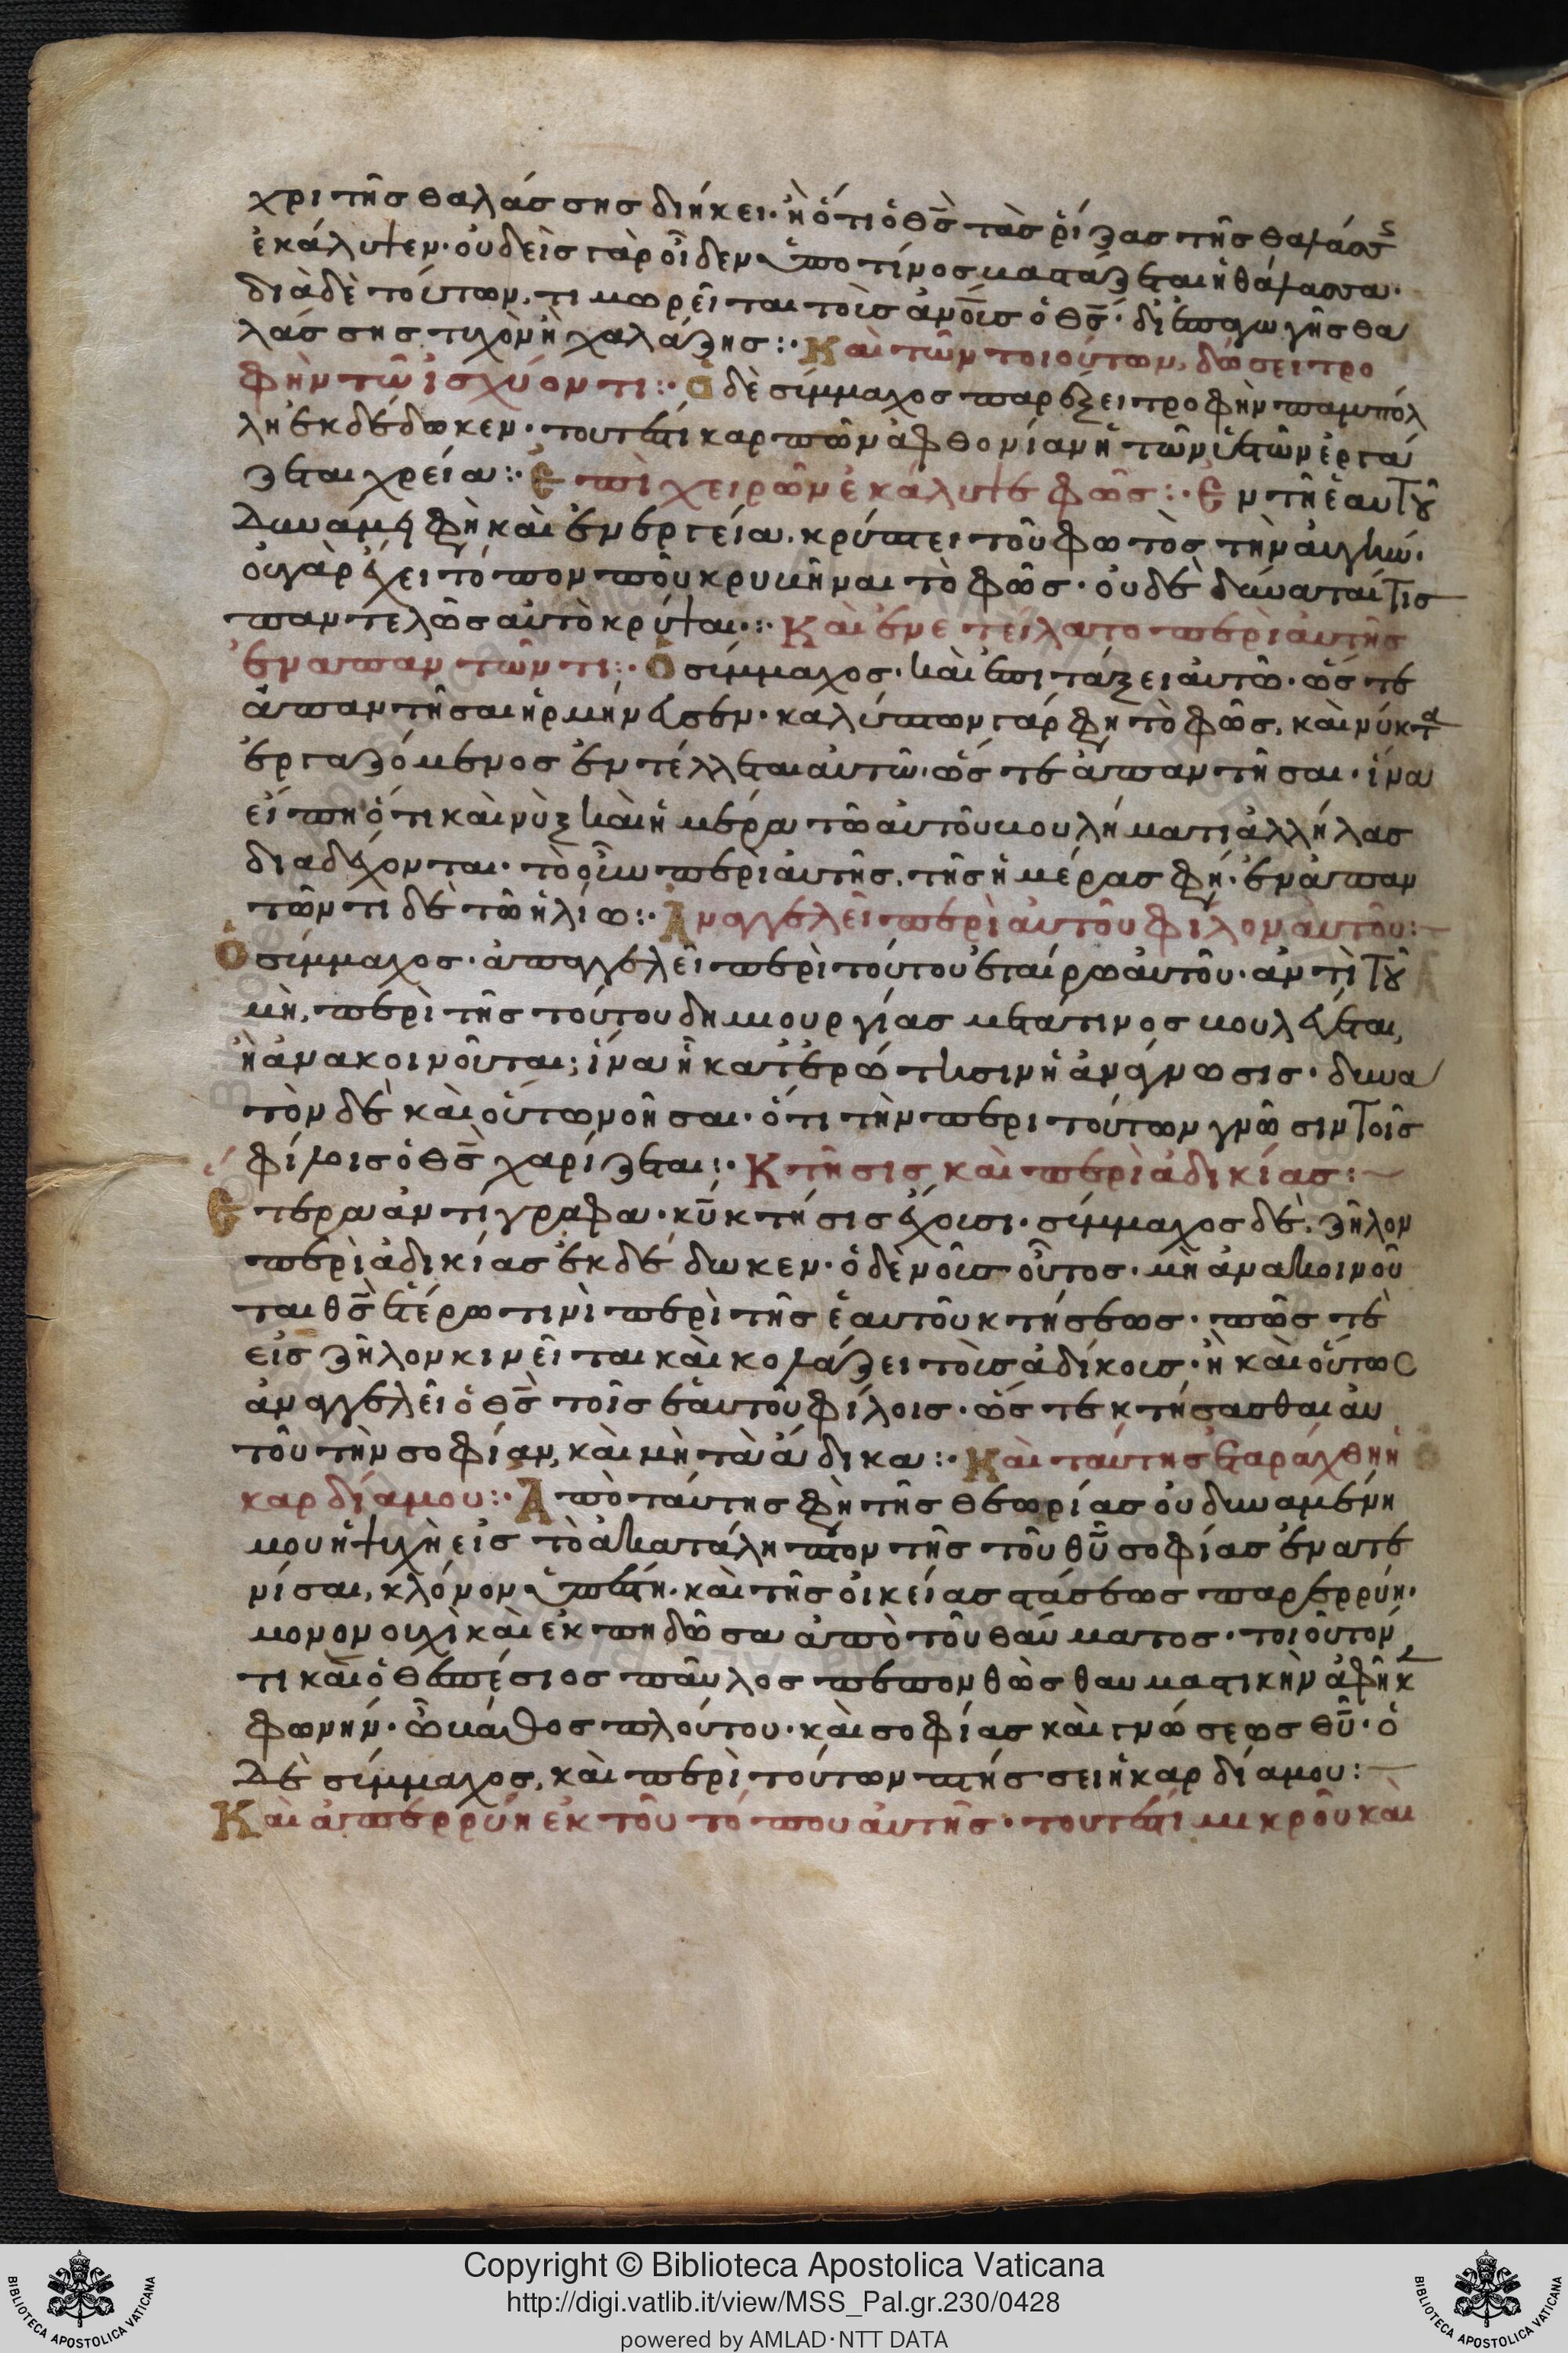 χρι τῆς θαλάσσης διήκει· ἢ ὅτι ὁ θς τὰς ῥίζας τῆς θαλάσσς
ἐκάλυψεν· οὐδεὶς γὰρ οἶδεν ὑπο τίνος βαστάζεται ἡ θάλασσα·
διὰ δὲ τούτων, τιμωρεῖται τοὺς ἀνους ὁ θς· δι' ἐπαγωγῆς θα
λάσσης τυχὸν ἢ χαλάζης :· Καὶ τῶν τοιούτων, δώσει τρο
φὴν τῶ ἰσχύοντι :· Ὁ δὲ σύμμαχος παρέξει τροφὴν παμπόλ
λη ἐκδέδωκεν· τουτέστι καρπῶν ἀφθονίαν ἡ τῶν ὑετῶν ἐργά
ζεται χρεία :· Ἐπὶ χειρῶν ἐκάλυψε φῶς :· Ἐν τῆ ἑαυτοῦ
δυνάμει φὴ καὶ ἐνεργεία. κρύπτει τοῦ φωτὸς τὴν αὐγήν·
οὐ γὰρ ἔχει τόπον ποῦ κρυβῆναι τὸ φῶς· οὐδὲ δύναταί τις
παντελῶς αὐτὸ κρύψαι :· Καὶ ἐνετείλατο περὶ αὐτῆς
ἐν ἀπαντῶντι :· Ὁ σύμμαχος· καὶ ἐπιτάξει αὐτῶ· ὥς τε
ἀπαντῆσαι ἡρμήνευσεν· καλύπτων γάρ φη τὸ φῶς, καὶ νύκτα
ἐργαζόμενος ἐντέλλεται αὐτῶ· ὥς τε ἀπαντῆσαι· ἵνα
εἴπη ὅτι καὶ νὺξ καὶ ἡμέρα τῶ αὐτοῦ βουλήματι ἀλλήλας
διαδέχονται· τὸ οὖν περὶ αὐτῆς, τῆς ἡμέρας φη· ἐν ἀπαν
τῶντι δὲ τῶ ἡλίω :· Ἀναγγελεῖ περὶ αὐτοῦ φίλον αὐτοῦ :
Ὁ σύμμαχος· ἀπαγγελεῖ περὶ τούτου ἑταίρω αὐτοῦ· ἀντὶ τοῦ
μὴ, περὶ τῆς τούτου δημιουργίας μετά τινος βουλεύεται,
ἢ ἀνακοινοῦται; ἵνα ἦ κατ' ἐρώτησιν ἡ ἀνάγνωσις· δυνα
τὸν δὲ καὶ οὕτω νοῆσαι· ὅτι τὴν περι τούτων γνῶσιν τοῖς
φίλοις ὁ θς χαρίζεται :· Κτῆσις καὶ περὶ ἀδικίας :
Ἕτερα ἀντίγραφα· κυ κτήσις ἔχουσι· σύμμαχος δὲ. ζῆλον
περὶ ἀδικίας ἐκδέδωκεν· ὁ δὲ νοῦς οὗτος· μὴ ἀνακοινοῦ
ται θς ἑτέρω τινὶ περὶ τῆς ἑαυτοῦ κτήσεως· πῶς τὲ
εἰς ζῆλον κινεῖται καὶ κολάζει τοὺς ἀδίκους· ἢ καὶ οὕτως
ἀναγγελεῖ ὁ θς τοῖς ἑαυτοῦ φίλοις· ὥς τε κτήσασθαι αὐ
τοῦ τὴν σοφίαν, καὶ μὴ τὰ ἄδικα :· Καὶ ταύτης ἐταράχθη ἡ
καρδία μου :· Ἀπὸ ταύτης φὴ τῆς θεωρίας οὐ δυναμένη
μου ἡ ψυχὴ εἰς τὸ ἀκατάληπτον τῆς τοῦ θυ σοφίας ἐνατε
νίσαι, κλόνον ὑπέστη· καὶ τῆς οἰκείας στάσεως παρερρύη·
μονονουχὶ καὶ ἐκπηδῶσα ἀπὸ τοῦ θαύματος· τοιοῦτόν
τι καὶ ὁ θεσπέσιος παῦλος πεπονθὼς θαυμαστικὴν ἀφῆκε
φωνήν· ὦ βάθος πλούτου· καὶ σοφίας καὶ γνώσεως θυ· ὁ
δὲ σύμμαχος, καὶ περὶ τούτων πτήσσει ἡ καρδία μου :
Καὶ ἀπερρύη ἐκ τοῦ τόπου αὐτῆς· τουτέστι μικροῦ καὶ
Copyright © Biblioteca Apostolica Vaticana
http://digi.vatlib.it/view/MSS_Pal.gr.230/0428
powered by AMLAD·NTT DATA
BIBLIOTECA APOSTOLICA VATICANA
BIBLIOTECA APOSTOLICA VATICANA